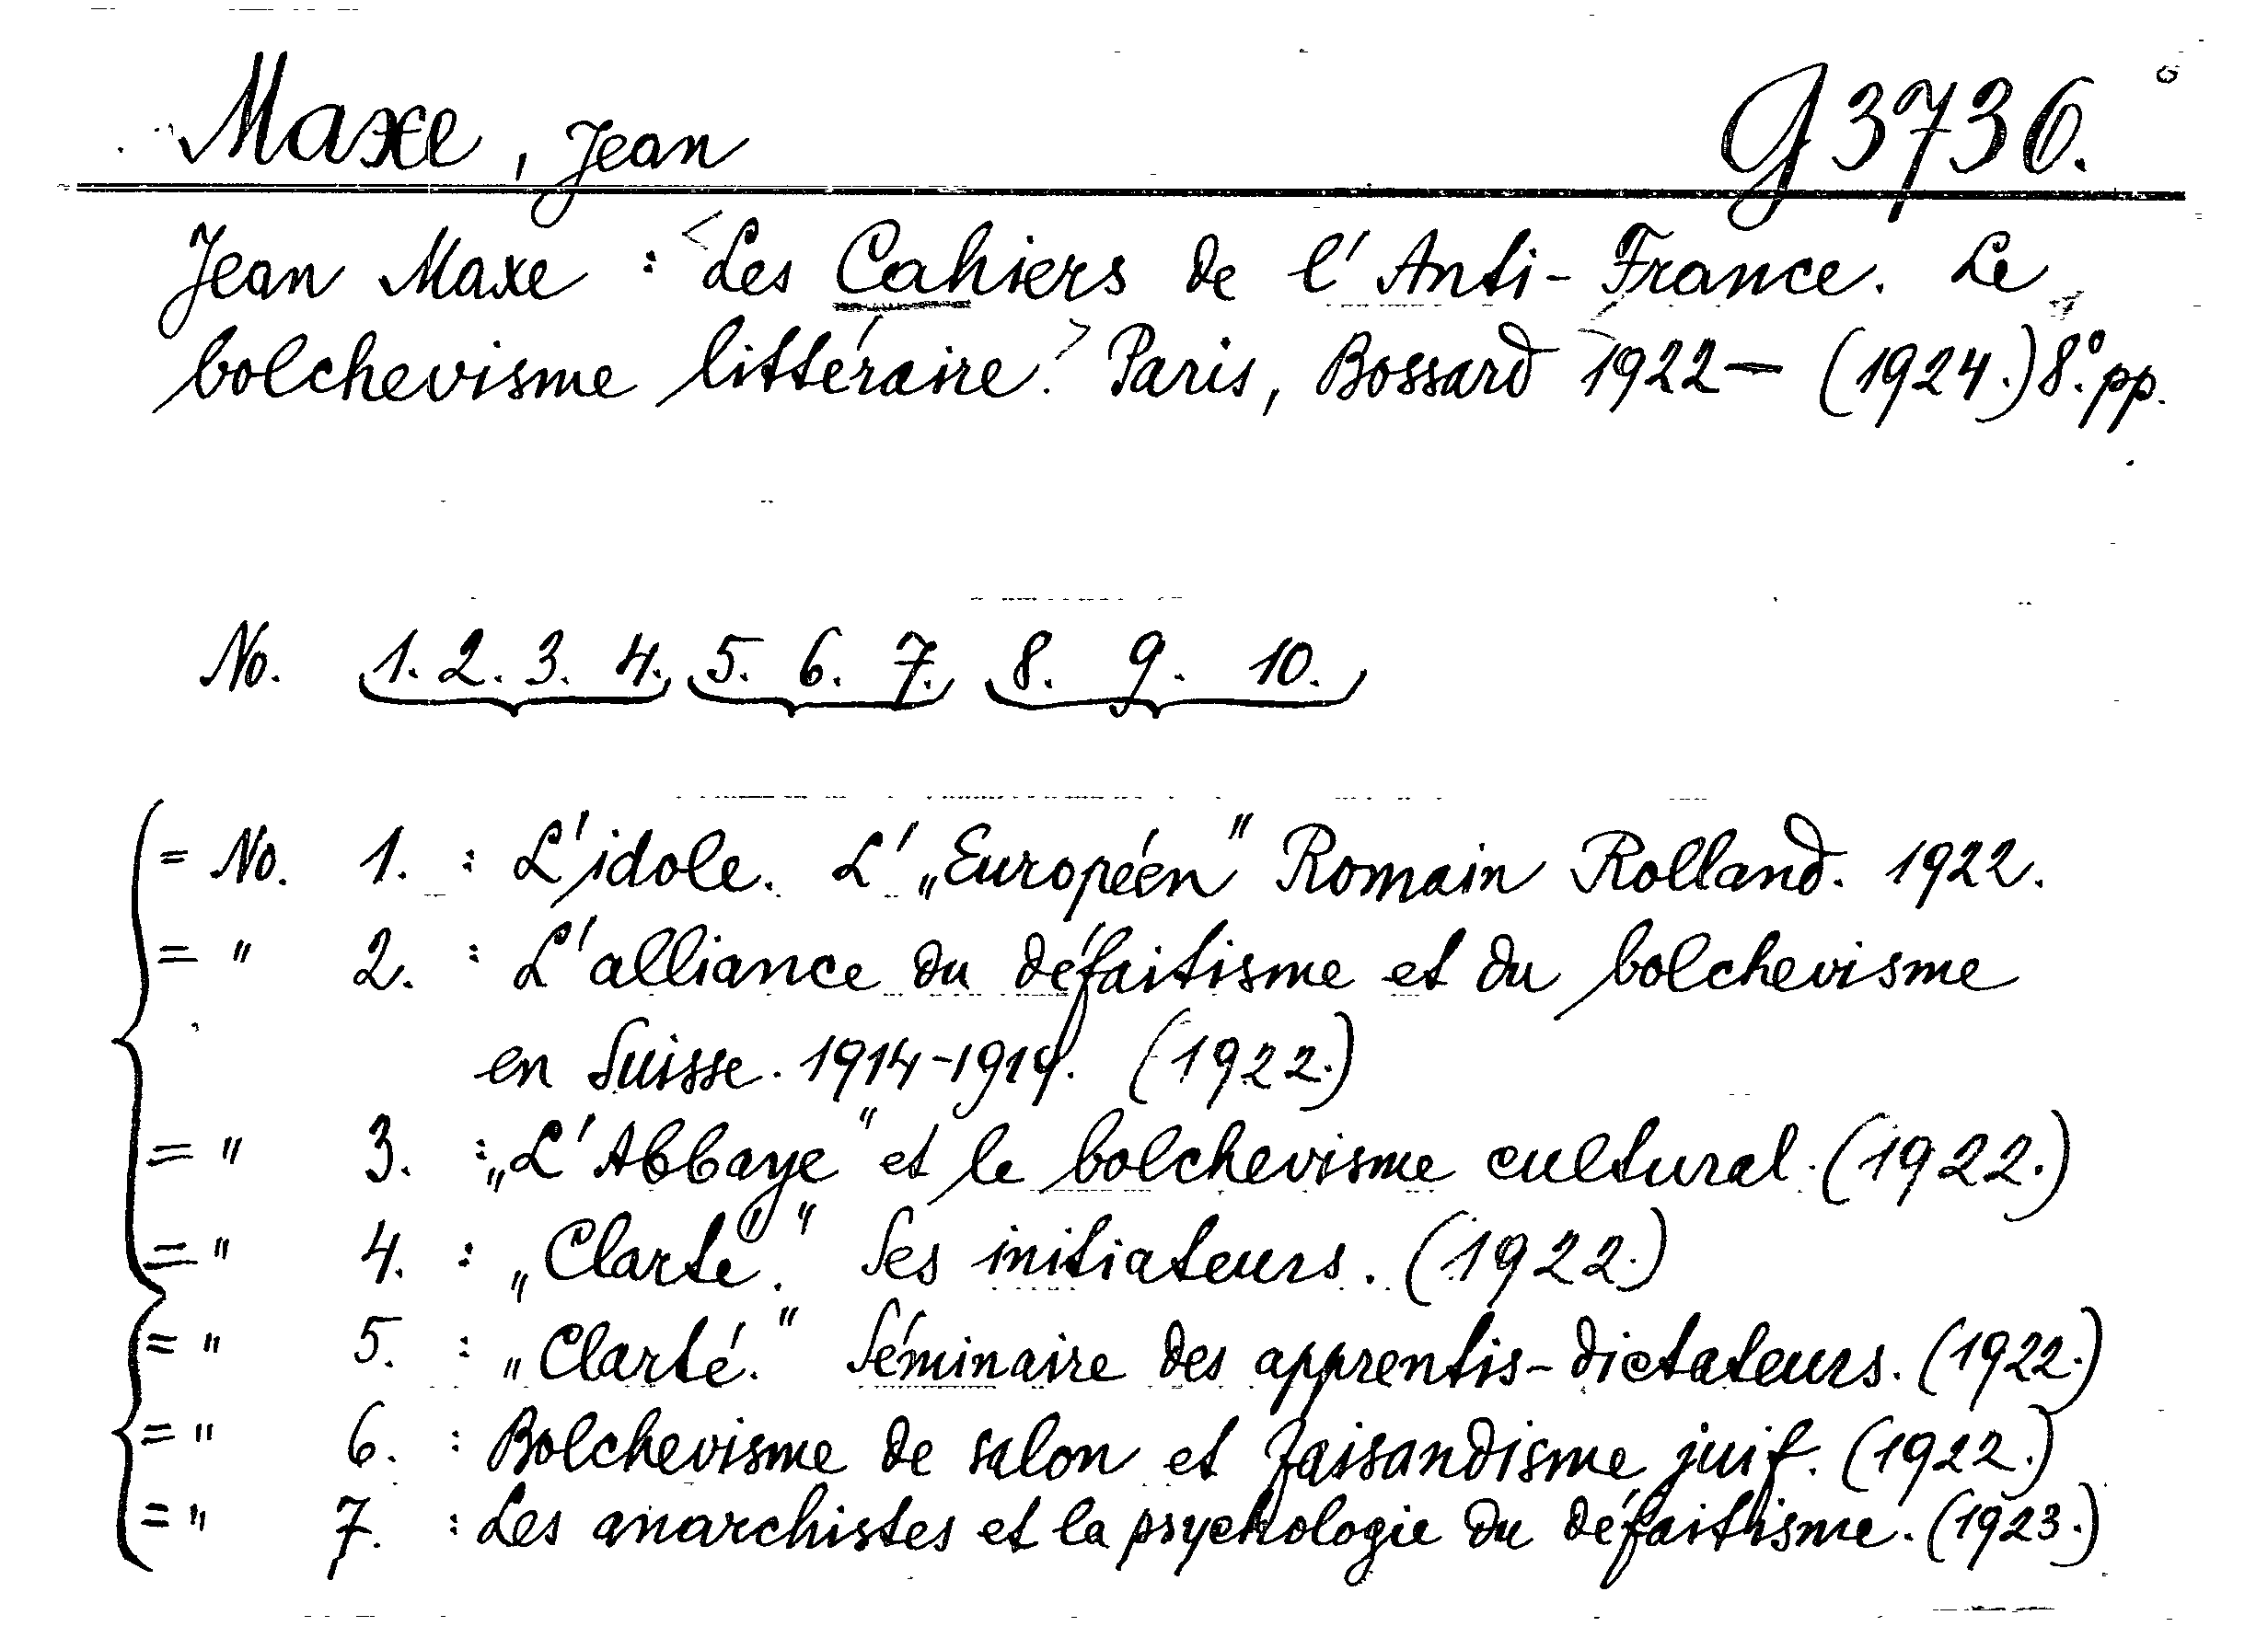 Maxe, Jean G 3736.
Jean Maxe : <Les Cahiers de l'Anti-France. Le
bolchevisme littéraire.> Paris, Bossard 1922–(1924.) 8°. pp.
No. 1. 2. 3. 4. 5. 6. 7. 8. 9. 10.
= No. 1. : L'idole. L'„Européen" Romain Rolland. 1922.
= " 2. : L'alliance du défaitisme et du bolchevisme
en Suisse. 1914-1919. (1922.)
= " 3. : „L'Abbaye" et le bolchevisme cultural. (1922.)
= " 4. : „Clarté." Ses initiateurs. (1922.)
= " 5. : „Clarté." Séminaire des apprentis-dictateurs. (1922.)
= " 6. : Bolchevisme de salon et faisandisme juif. (1922.)
= " 7. : Les anarchistes et la psychologie du défaitisme. (1923.)